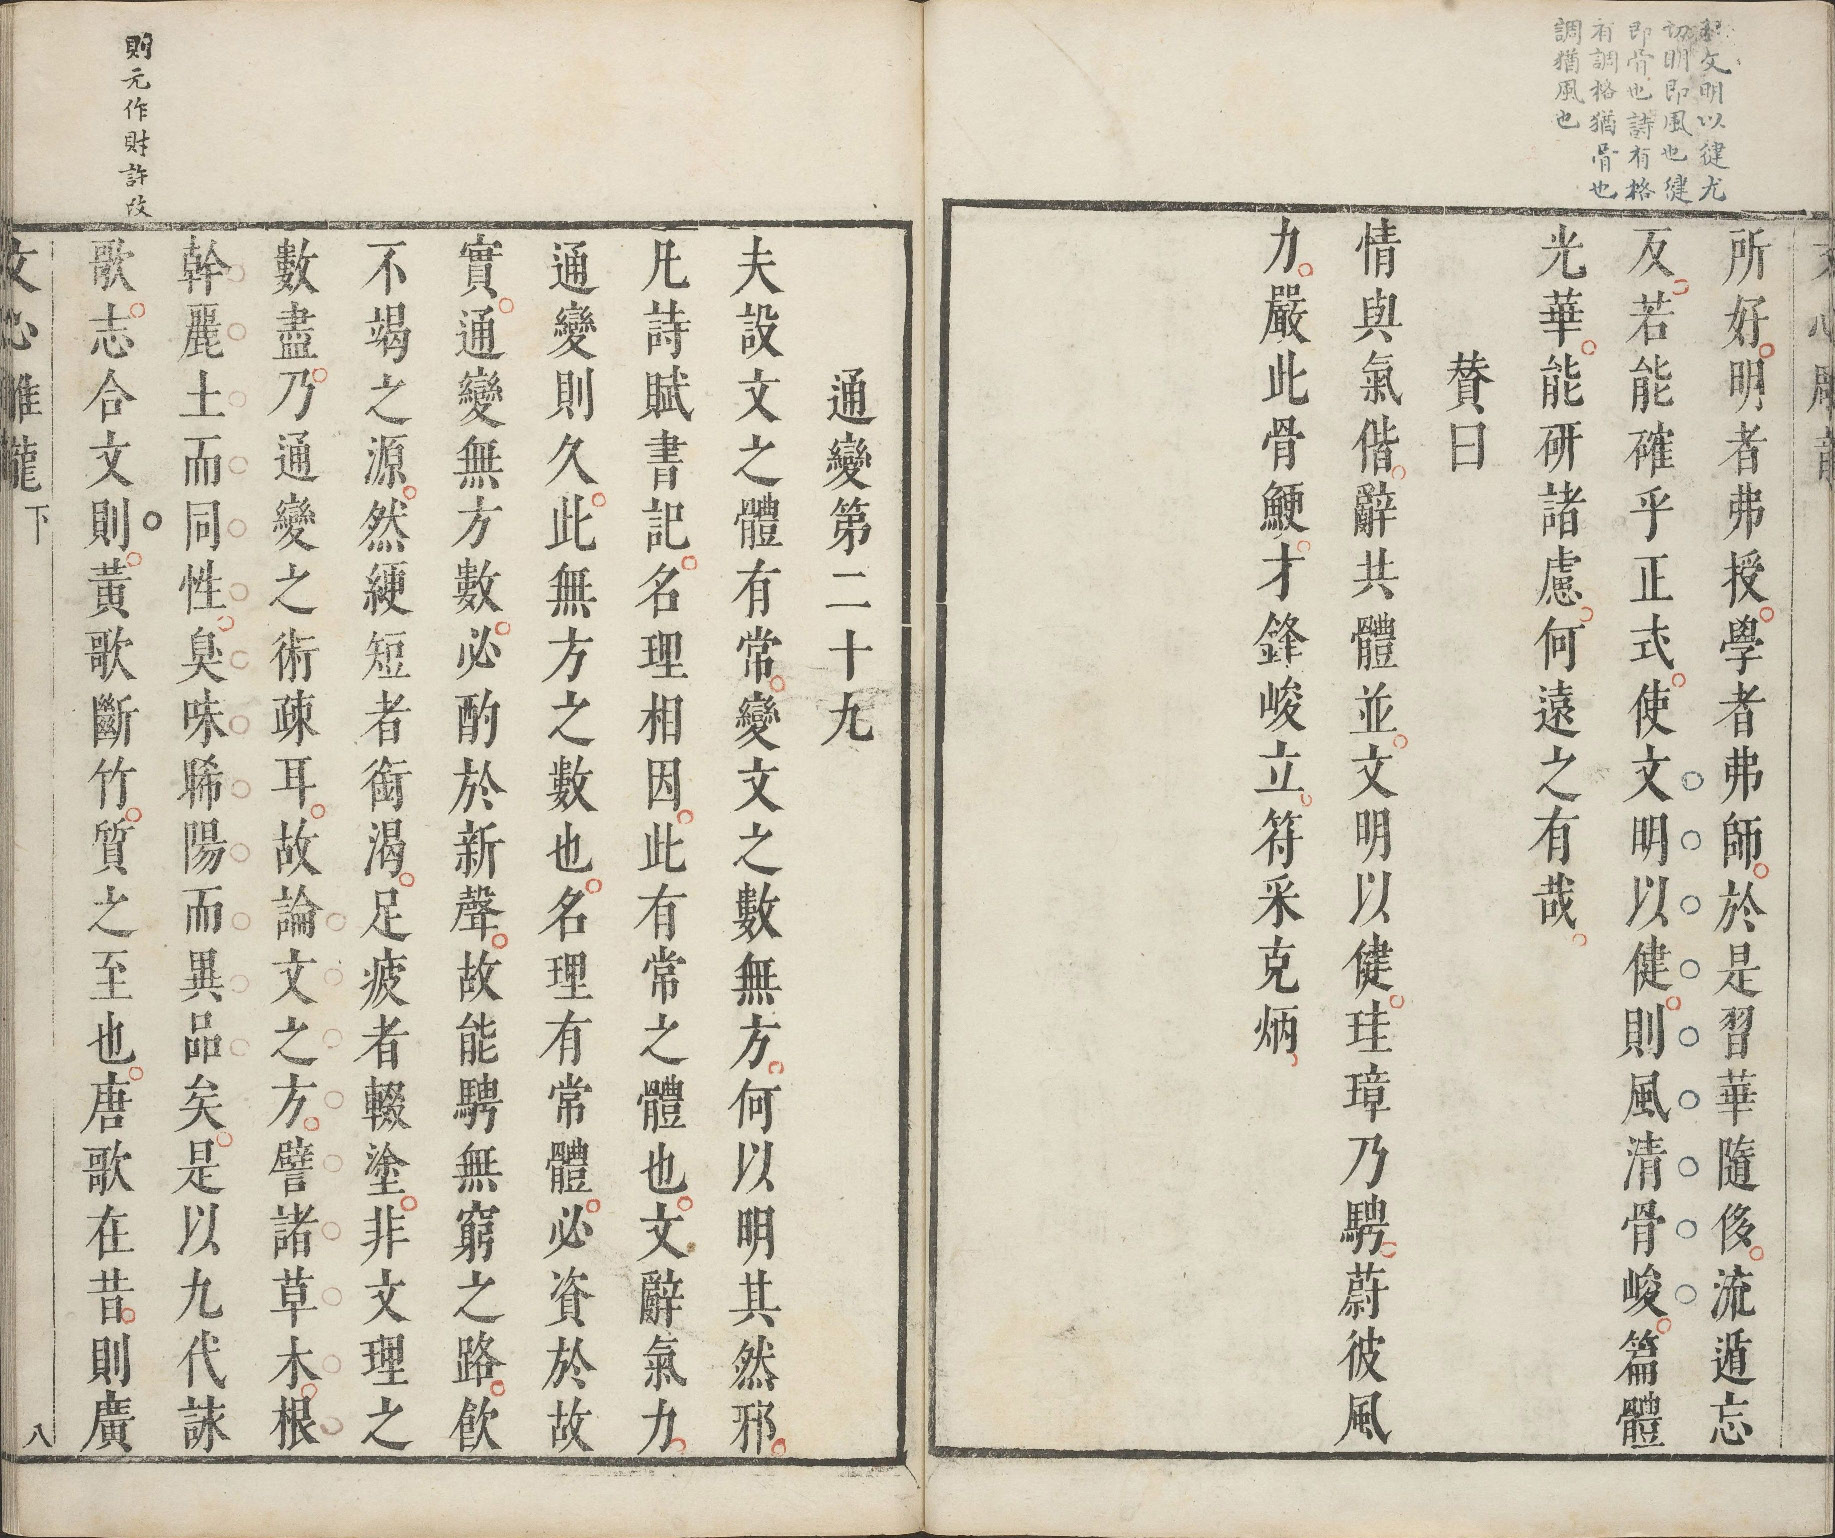 文明以健尤
切明即風也健
即骨也詩有格
有調格猶骨也
調猶風也
所好明者弗授學者弗師於是習華隨侈流遁忘
反若能確乎正式使文明以健則風清骨峻篇體
光華能研諸慮何遠之有哉
賛曰
情與氣偕辭共體並文明以健珪璋乃騁蔚彼風
力嚴此骨鯁才鋒峻立符采克炳
則元作財許改
通變第二十九
夫設文之體有常變文之數無方何以明其然邪
凡詩賦書記名理相因此有常之體也文辭氣力
通變則久此無方之數也名理有常體必資於故
實通變無方數必酌於新聲故能騁無窮之路飲
不竭之源然綆短者銜渴足疲者輟塗非文理之
數盡乃通變之術疎耳故論文之方譬諸草木根
幹麗土而同性臭味晞陽而異品矣是以九代詠
歌志合文則黃歌斷竹質之至也唐歌在昔則廣
文心雕龍 下
八